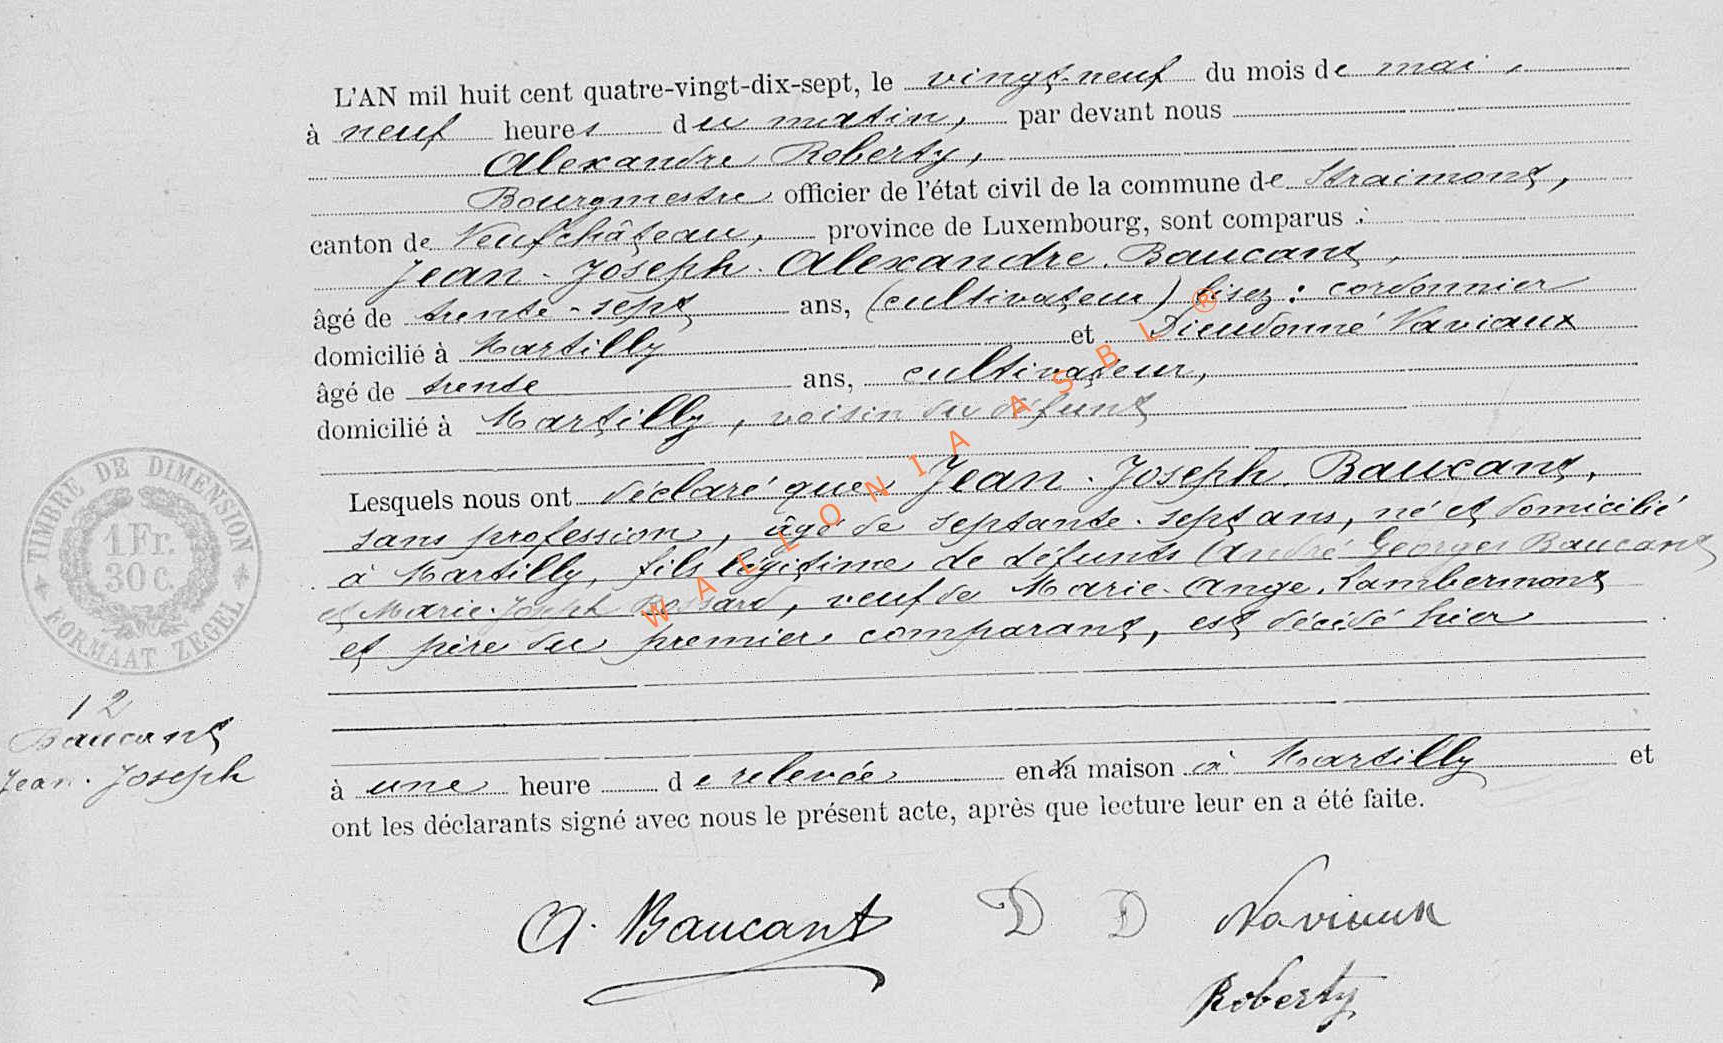 L'AN mil huit cent quatre-vingt-dix-sept, le vingt-neuf du mois de mai,
à neuf heures du matin, par devant nous
Alexandre Roberty,
Bourgmestre officier de l'état civil de la commune de Straimont,
canton de Neufchâteau, province de Luxembourg, sont comparus :
Jean-Joseph-Alexandre Baucant,
âgé de trente-sept ans, (cultivateur) lisez : cordonnier
domicilié à Martilly et Dieudonné Naviaux
âgé de trente ans, cultivateur,
domicilié à Martilly, voisin du défunt
Lesquels nous ont déclaré que Jean-Joseph Baucant,
sans profession, âgé de septante-sept ans, né et domicilié
à Martilly, fils légitime de défunts André Georges Baucant
et Marie-Joseph Rossard, veuf de Marie-Ange Lambermont
et père du premier comparant, est décédé hier
à une heure de relevée en sa maison à Martilly et
ont les déclarants signé avec nous le présent acte, après que lecture leur en a été faite.
TIMBRE DE DIMENSION
1 Fr.
30 C.
FORMAAT ZEGEL
12
Baucant
Jean-Joseph
A. Baucant D D Naviaux
Roberty
WALLONIA ASBL ®